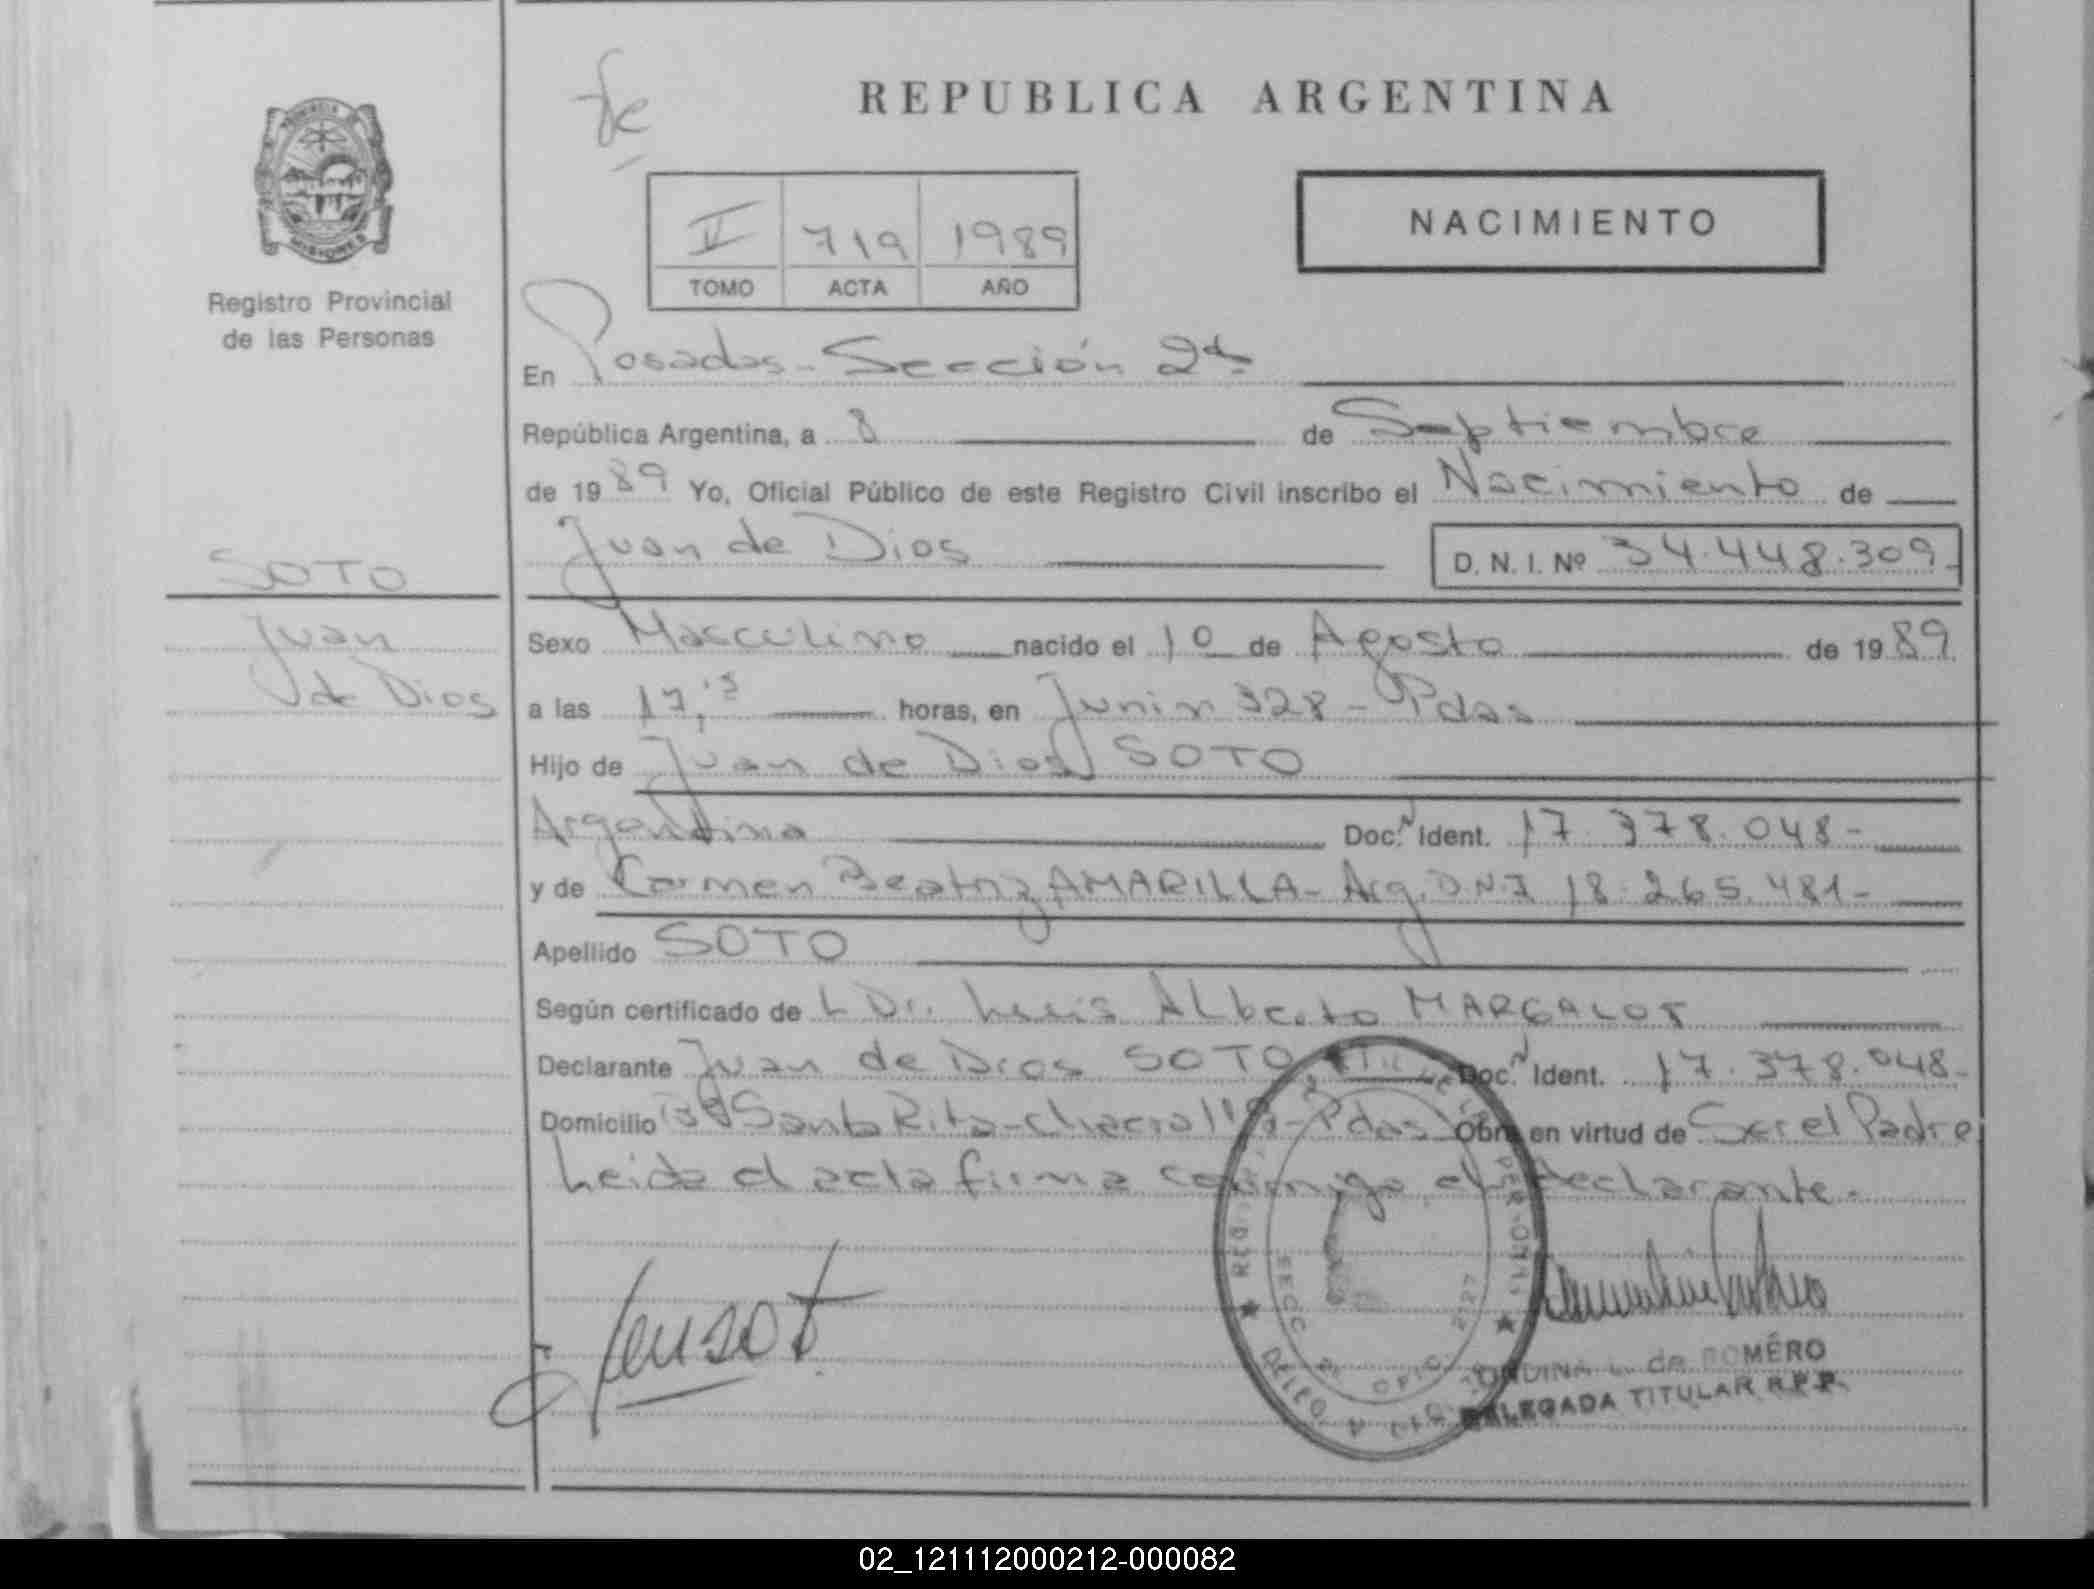 REPUBLICA ARGENTINA
NACIMIENTO
II 719 1989
TOMO ACTA AÑO
PROVINCIA DE
MISIONES
Registro Provincial
de las Personas
En Posadas - Sección 2da
República Argentina, a 8 de Septiembre
de 1989 Yo, Oficial Público de este Registro Civil inscribo el Nacimiento de
Juan de Dios D. N. I. Nº 34.448.309-
SOTO
Juan
de Dios
Sexo Masculino nacido el 10 de Agosto de 1989
a las 17,15 horas, en Junin 328 - Pdas
Hijo de Juan de Dios SOTO
Argentina Doc. Nº Ident. 17.378.048-
y de Carmen Beatriz AMARILLA - Arg. D.N.I 18.265.481-
Apellido SOTO
Según certificado de L Dr. Luis Alberto MARGALOT
Declarante Juan de Dios SOTO Doc. Nº Ident. 17.378.048-
Domicilio Bº Santa Rita - Chacra - Pdas Obra en virtud de Ser el Padre
Leida el acta firma conmigo el declarante.
L. de ROMERO
DELEGADA TITULAR R.P.P.
02_121112000212-000082